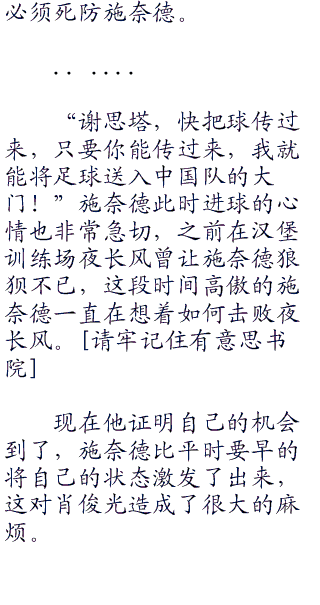 必须死防施奈德。
.. ....
“谢思塔，快把球传过
来，只要你能传过来，我就
能将足球送入中国队的大
门！”施奈德此时进球的心
情也非常急切，之前在汉堡
训练场夜长风曾让施奈德狼
狈不已，这段时间高傲的施
奈德一直在想着如何击败夜
长风。[请牢记住有意思书
院]
现在他证明自己的机会
到了，施奈德比平时要早的
将自己的状态激发了出来，
这对肖俊光造成了很大的麻
烦。